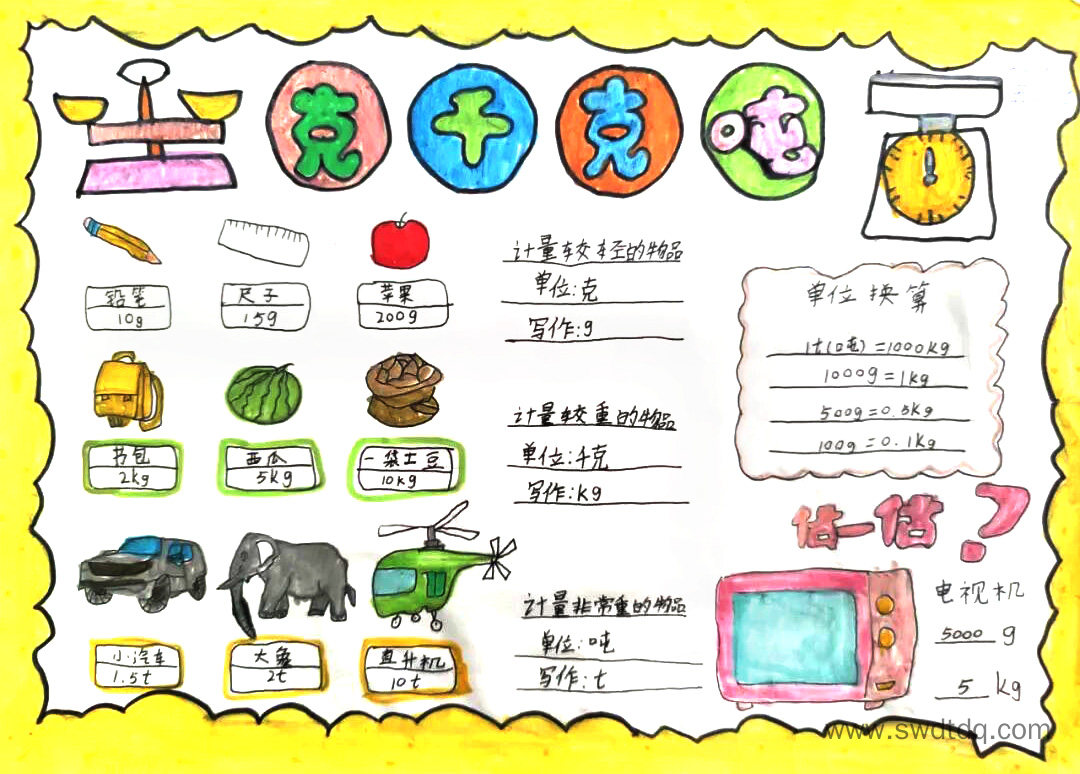 克千克吨
铅笔 尺子 苹果
10g 15g 200g
计量较轻的物品
单位:克
写作:g
书包 西瓜 一袋土豆
2kg 5kg 10kg
计量较重的物品
单位:千克
写作:kg
小汽车 大象 直升机
1.5t 2t 10t
计量非常重的物品
单位:吨
写作:t
单位换算
1t(吨)=1000kg
1000g=1kg
500g=0.5kg
100g=0.1kg
估一估?
电视机
5000 g
5 kg
www.swdtdq.com